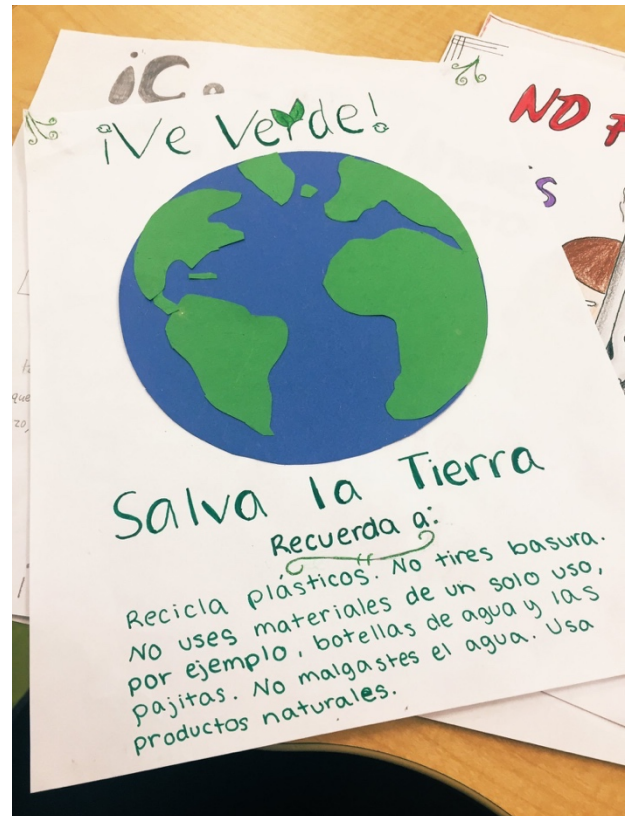 ¡C.
NO
¡Ve Verde!
Salva la Tierra
Recuerda a:
Recicla plásticos. No tires basura.
No uses materiales de un solo uso,
por ejemplo, botellas de agua y las
pajitas. No malgastes el agua. Usa
productos naturales.